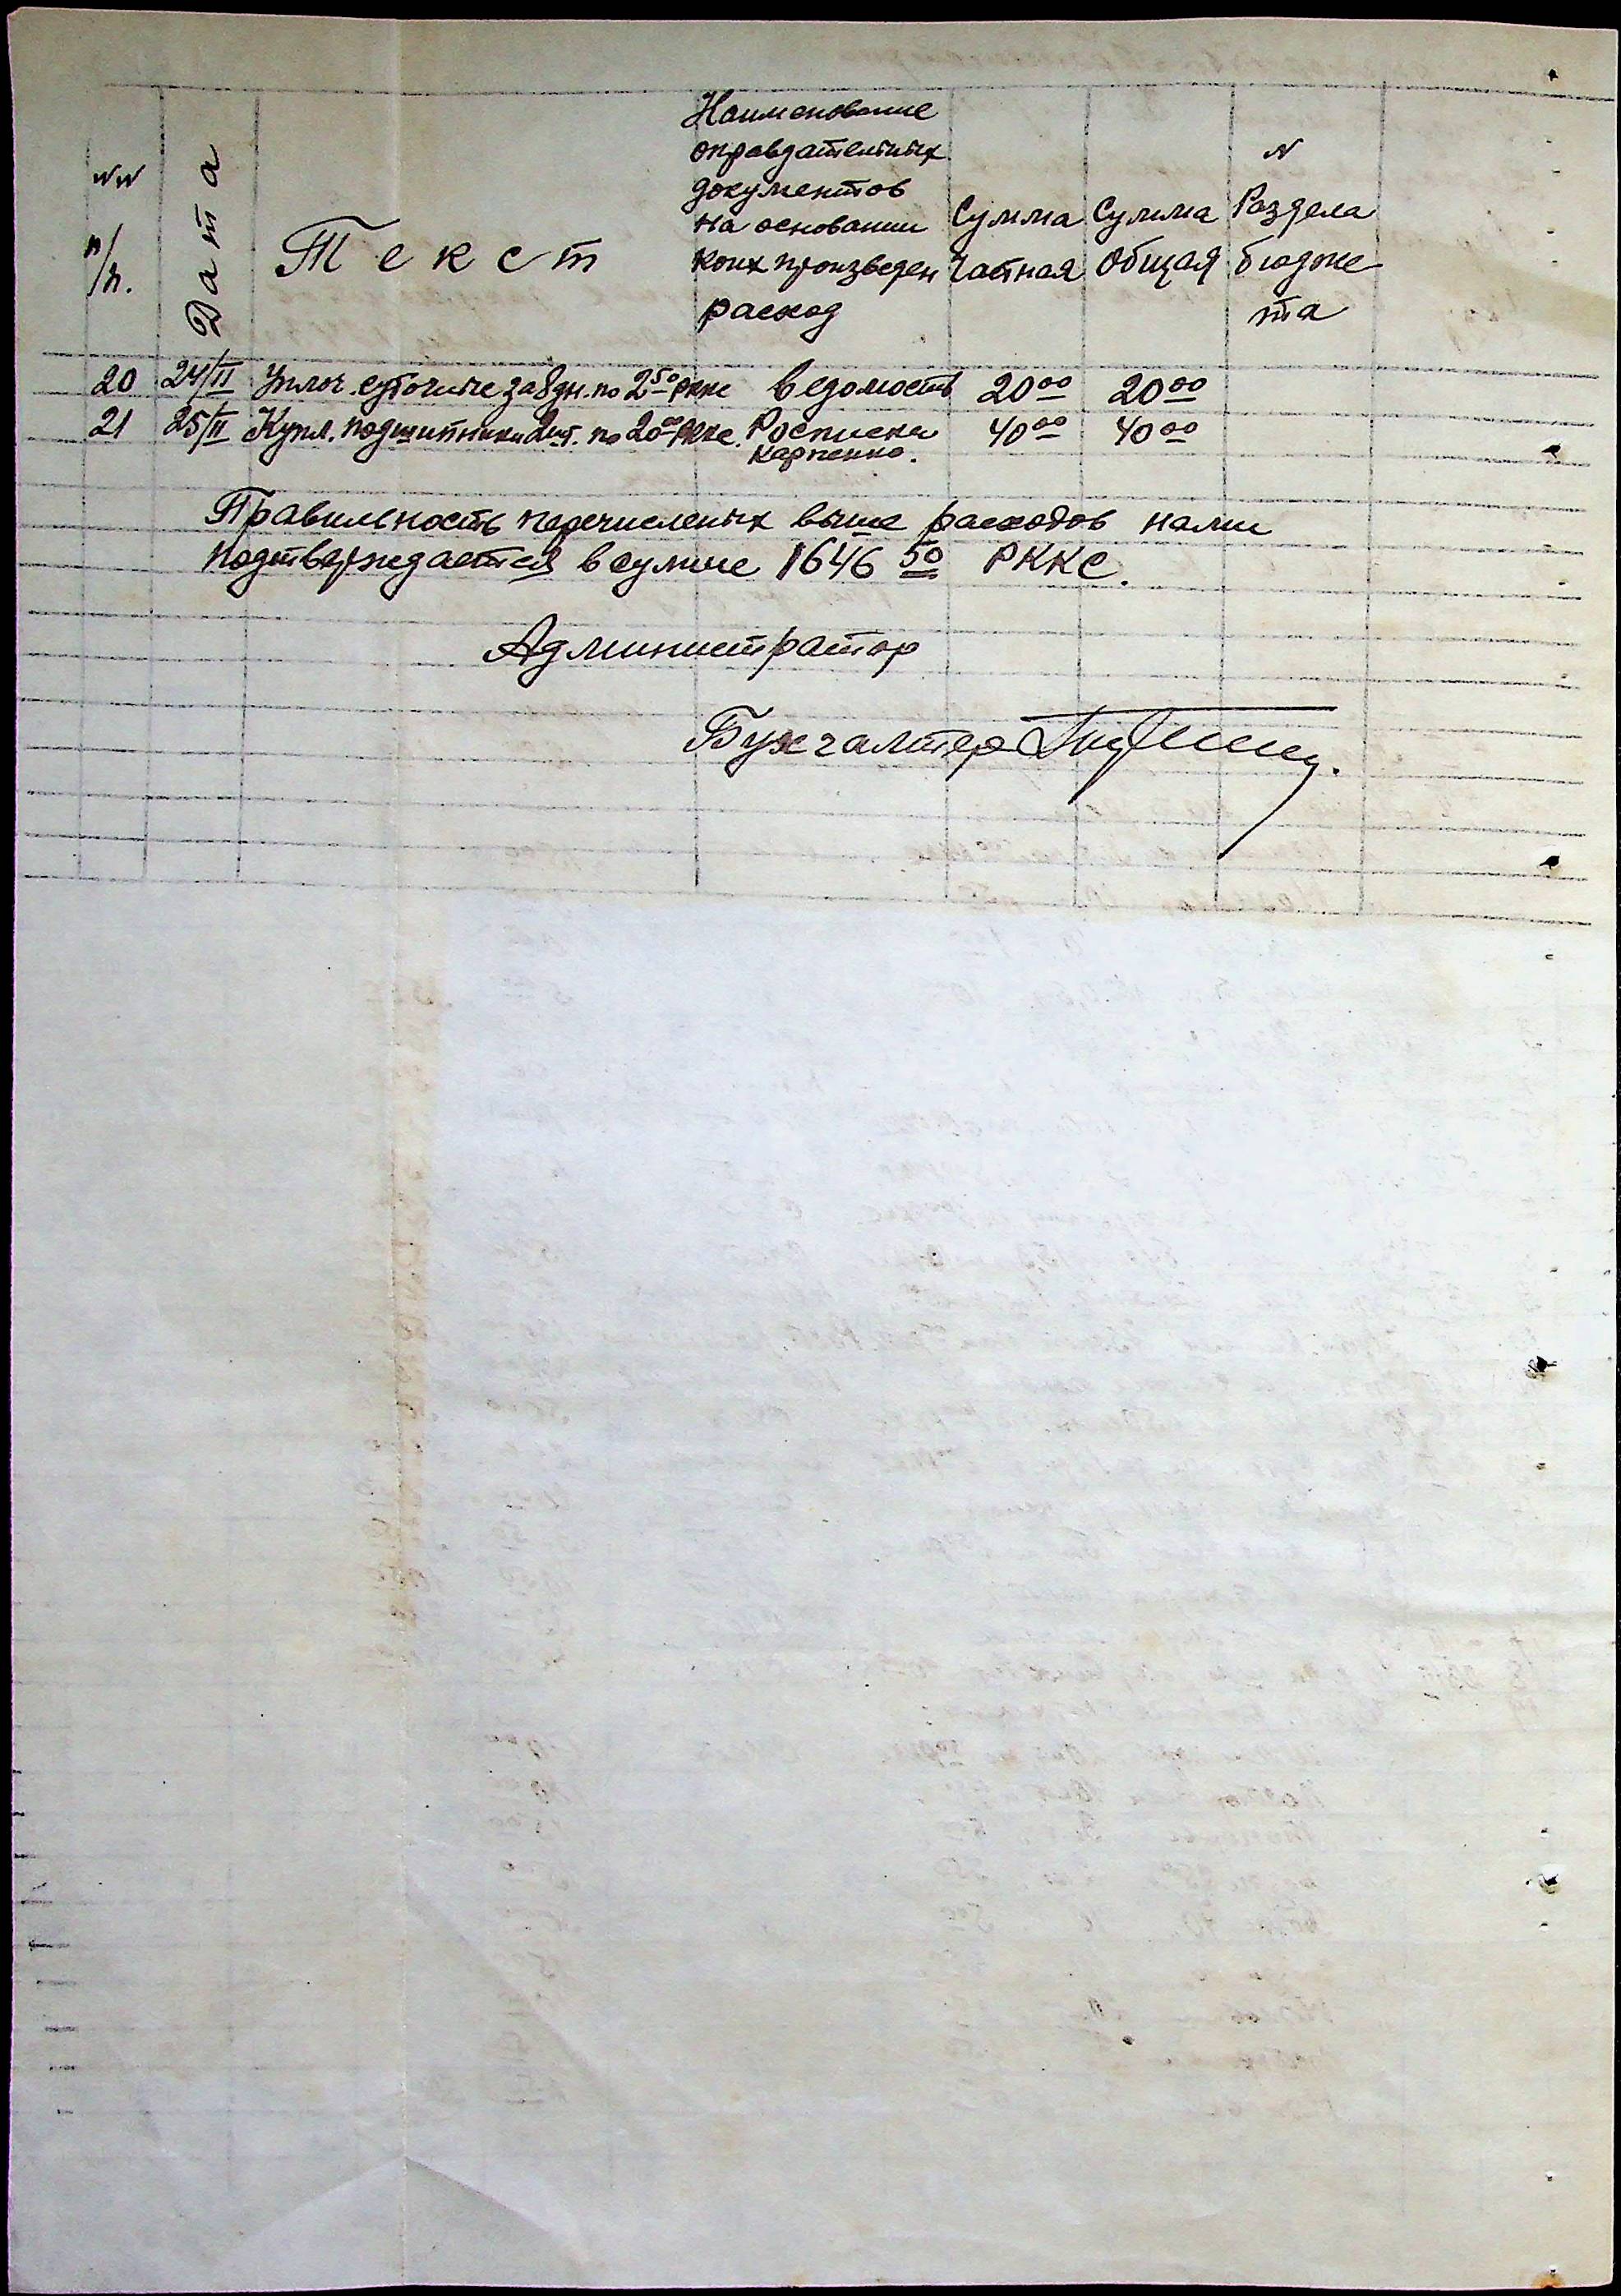 NN п/п.
Дата
Текст
Наименование
оправдательных
документов
на основании
коих произведен
расход
Сумма
Частная
Сумма
общая
N
Раздела
бюдже-
та
20 24/II Уплоч. суточные за 8 дн. по 2 50 РККС ведомость 20 00 20 00
21 25/II Купл. подшипники 2 шт. по 20 00 РККС. Росписка 40 00 40 00
Карпенко.
Правильность перечисленых выше расходов нами
подтверждается в сумме 1646 50 РККС.
Администратор
Бухгалтер